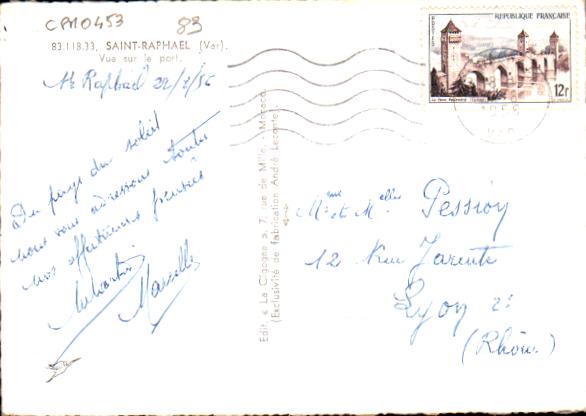 CPM0453
83
83.118.33. SAINT-RAPHAEL (Var).
Vue sur le port.
St Raphaël 22/7/56
Du pays du soleil
nous vous adressons toutes
nos affectueuses pensées
Marcelle
Edit. « La Cigogne », 7, rue de Millo, Monaco.
(Exclusivité de fabrication André Leconte).
POSTES
REPUBLIQUE FRANÇAISE
12f
VAR
Mme et Melles Pession
12 Rue Zarente
Lyon 2e
(Rhône)